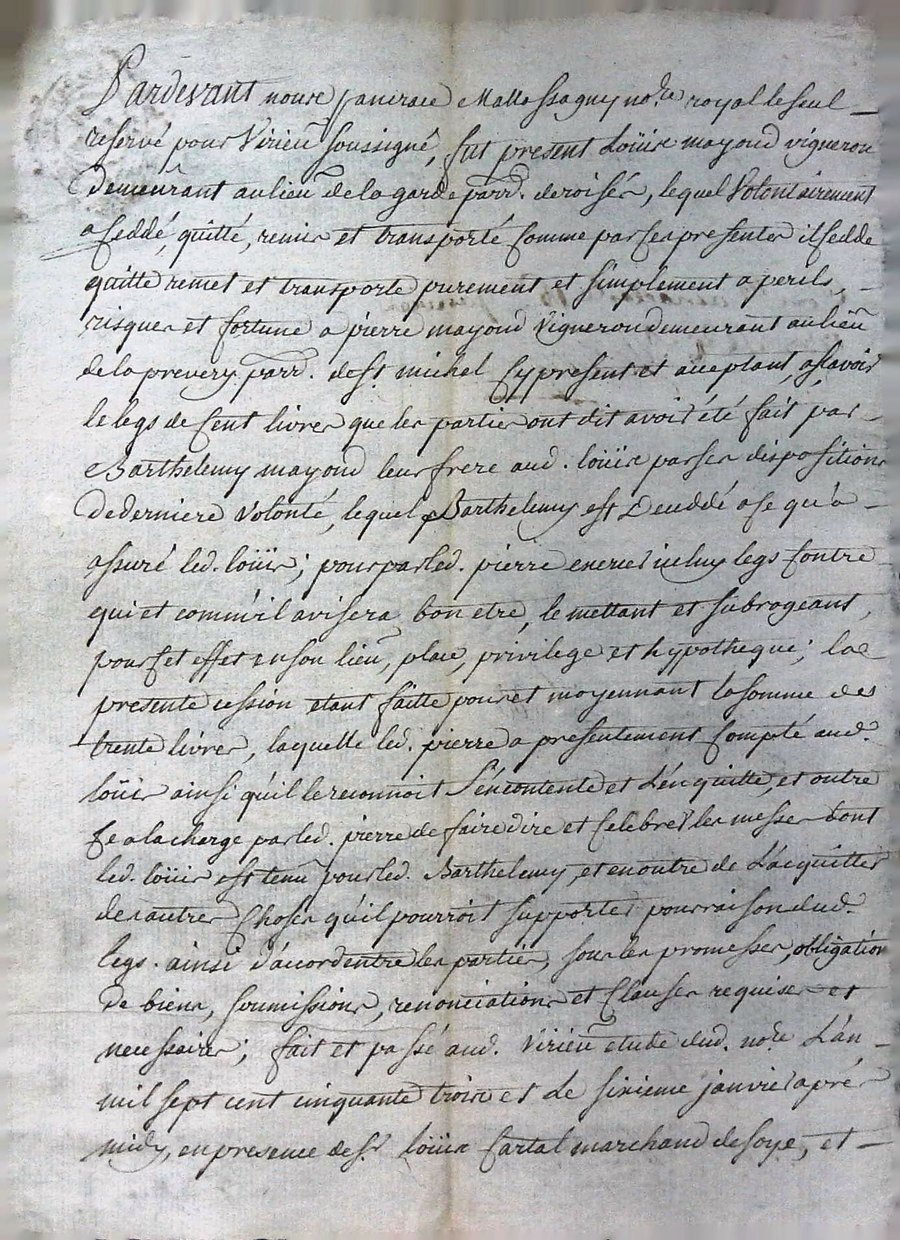 Pardevant nous pancrace Mattossagny no.re royal le seul
reservé pour Virieu soussigné, fut present Loüis mayoud vigneron
demeurant au lieu de la garde parr. de roisey, lequel volontairement
a ceddé, quitté, remis et transporté comme par ces presentes il cedde
quitte remet et transporte purement et simplement a perils,
risques et fortune a pierre mayoud vigneron demeurant au lieu
de la prevery parr. de st michel cy present et acceptant, asçavoir
le legs de cent livres que les parties ont dit avoir été fait par
Barthelemy mayoud leur frere aud. loüis par ses dispositions
de derniere volonté, lequel Barthelemy est deceddé a ce qu'a
assuré led. loüis; pour par led. pierre exercer iceluy legs contre
qui et comm'il avisera bon etre, le mettant et subrogeant,
pour cet effet en son lieu, place, privilege et hypotheque; la
presente cession etant faitte pour et moyennant la somme de
trente livres, laquelle led. pierre a presentement compté aud.
loüis ainsi qu'il le reconnoit s'en contente et l'en quitte, et outre
ce a la charge par led. pierre de faire dire et celebrer les messes dont
led. loüis est tenu pour led. Barthelemy, et en outre de l'acquitter
des autres choses qu'il pourroit supporter pour raison dud.
legs. ainsi d'accord entre les parties, sous les promesses, obligation
de biens, soumissions, renonciations et clauses requises et
necessaires; fait et passé aud. Virieu etude dud. no.re L'an
mil sept cent cinquante trois et le sixieme janvier apré
midy, en presence de sr. loüis Cartal marchand de soye, et